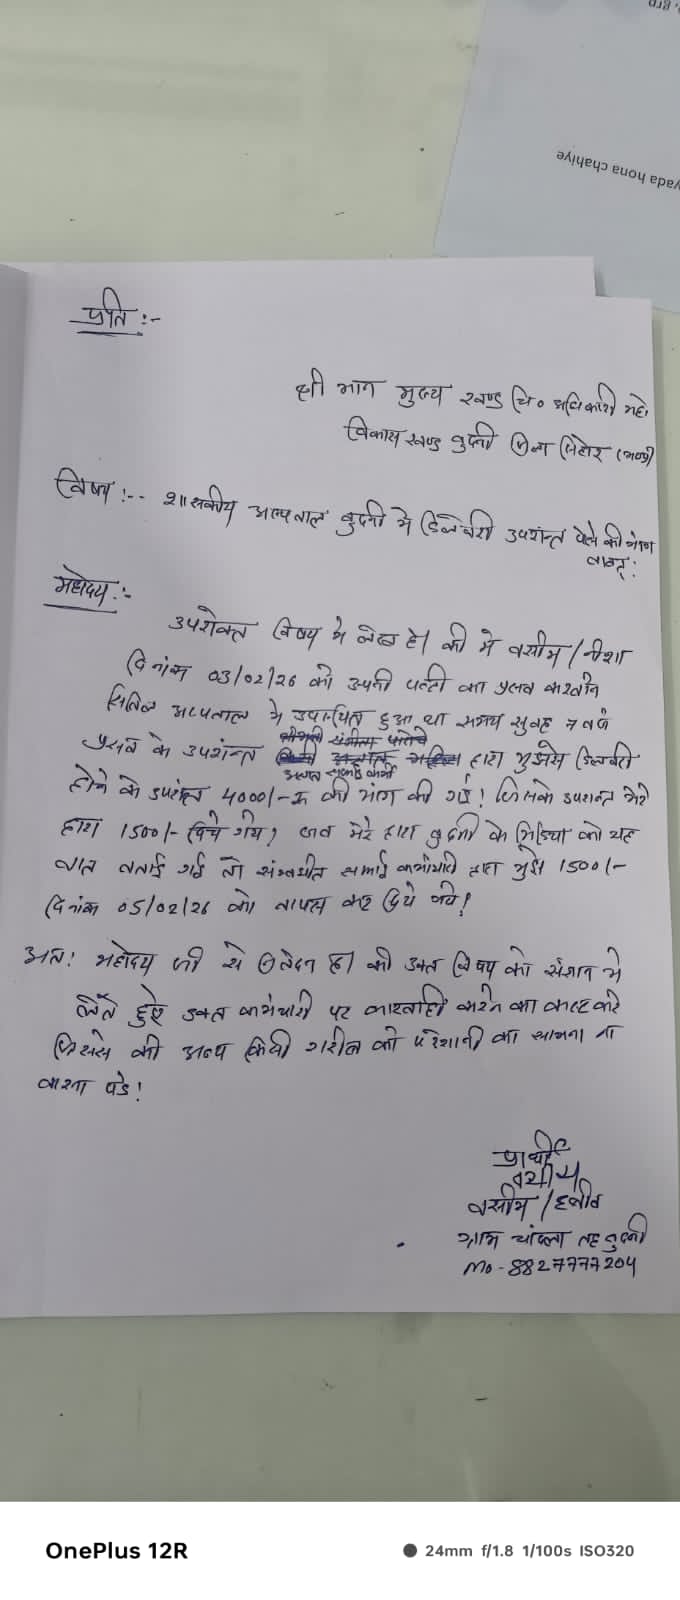 yada hona chahiye
प्रति :-
श्री मान मुख्य खण्ड चि० अधिकारी महो
विकास खण्ड बुदनी जिला सिहोर (म०प्र)
विषय :-- शासकीय अस्पताल बुदनी मे डिलेवरी उपरान्त पैसे की मांग
बाबत् :
महोदय :-
उपरोक्त विषय मे लेख है। की मे वसीम / नीशा
दिनांक 03/02/26 को अपनी पत्नी का प्रसव करवाने
सिविल अस्पताल मे उपस्थित हुआ था समय सुबह 7 बजे
प्रसव के उपरांत द्वारा मुझसे डिलेवरी
अज्ञात सफाई कर्मी
होने के उपरांत 4000/-रू की मांग की गई! जिसके उपरान्त मेरे
द्वारा 1500/- दिये गये! जब मेरे द्वारा बुदनी के मिडिया को यह
बात बताई गई तो संबंधीत सफाई कर्मचारी द्वारा मुझे 1500/-
दिनांक 05/02/26 को वापस कर दिये गये!
अतः महोदय जी से निवेदन है। की उक्त विषय को संज्ञान मे
लेते हुऐ उक्त कर्मचारी पर कारवाही करने का कष्ट करे
जिससे की अन्य किसी गरीब को परेशानी का सामना ना
करना पडे!
प्रार्थी
वसीम
वसीम / हनीफ
ग्राम तह बुदनी
mo - 8827777204
OnePlus 12R
24mm f/1.8 1/100s ISO320